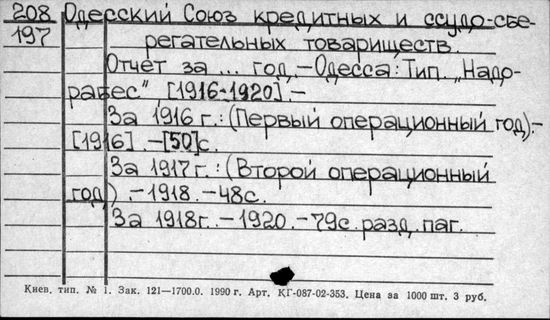 208 Одесский Союз кредитных и ссудо-сбе-
197 регательных товариществ.
Отчет за ... год. - Одесса: Тип. "Надо-
рабес", [1916-1920]. -
За 1916 г.: (Первый операционный год). -
[1916]. - [50] с.
За 1917 г.: (Второй операционный
год). - 1918. - 48 с.
За 1918 г. - 1920. - 79 с. разд. паг.
Киев. тип. № 1. Зак. 121—1700.0. 1990 г. Арт. КГ-087-02-353. Цена за 1000 шт. 3 руб.